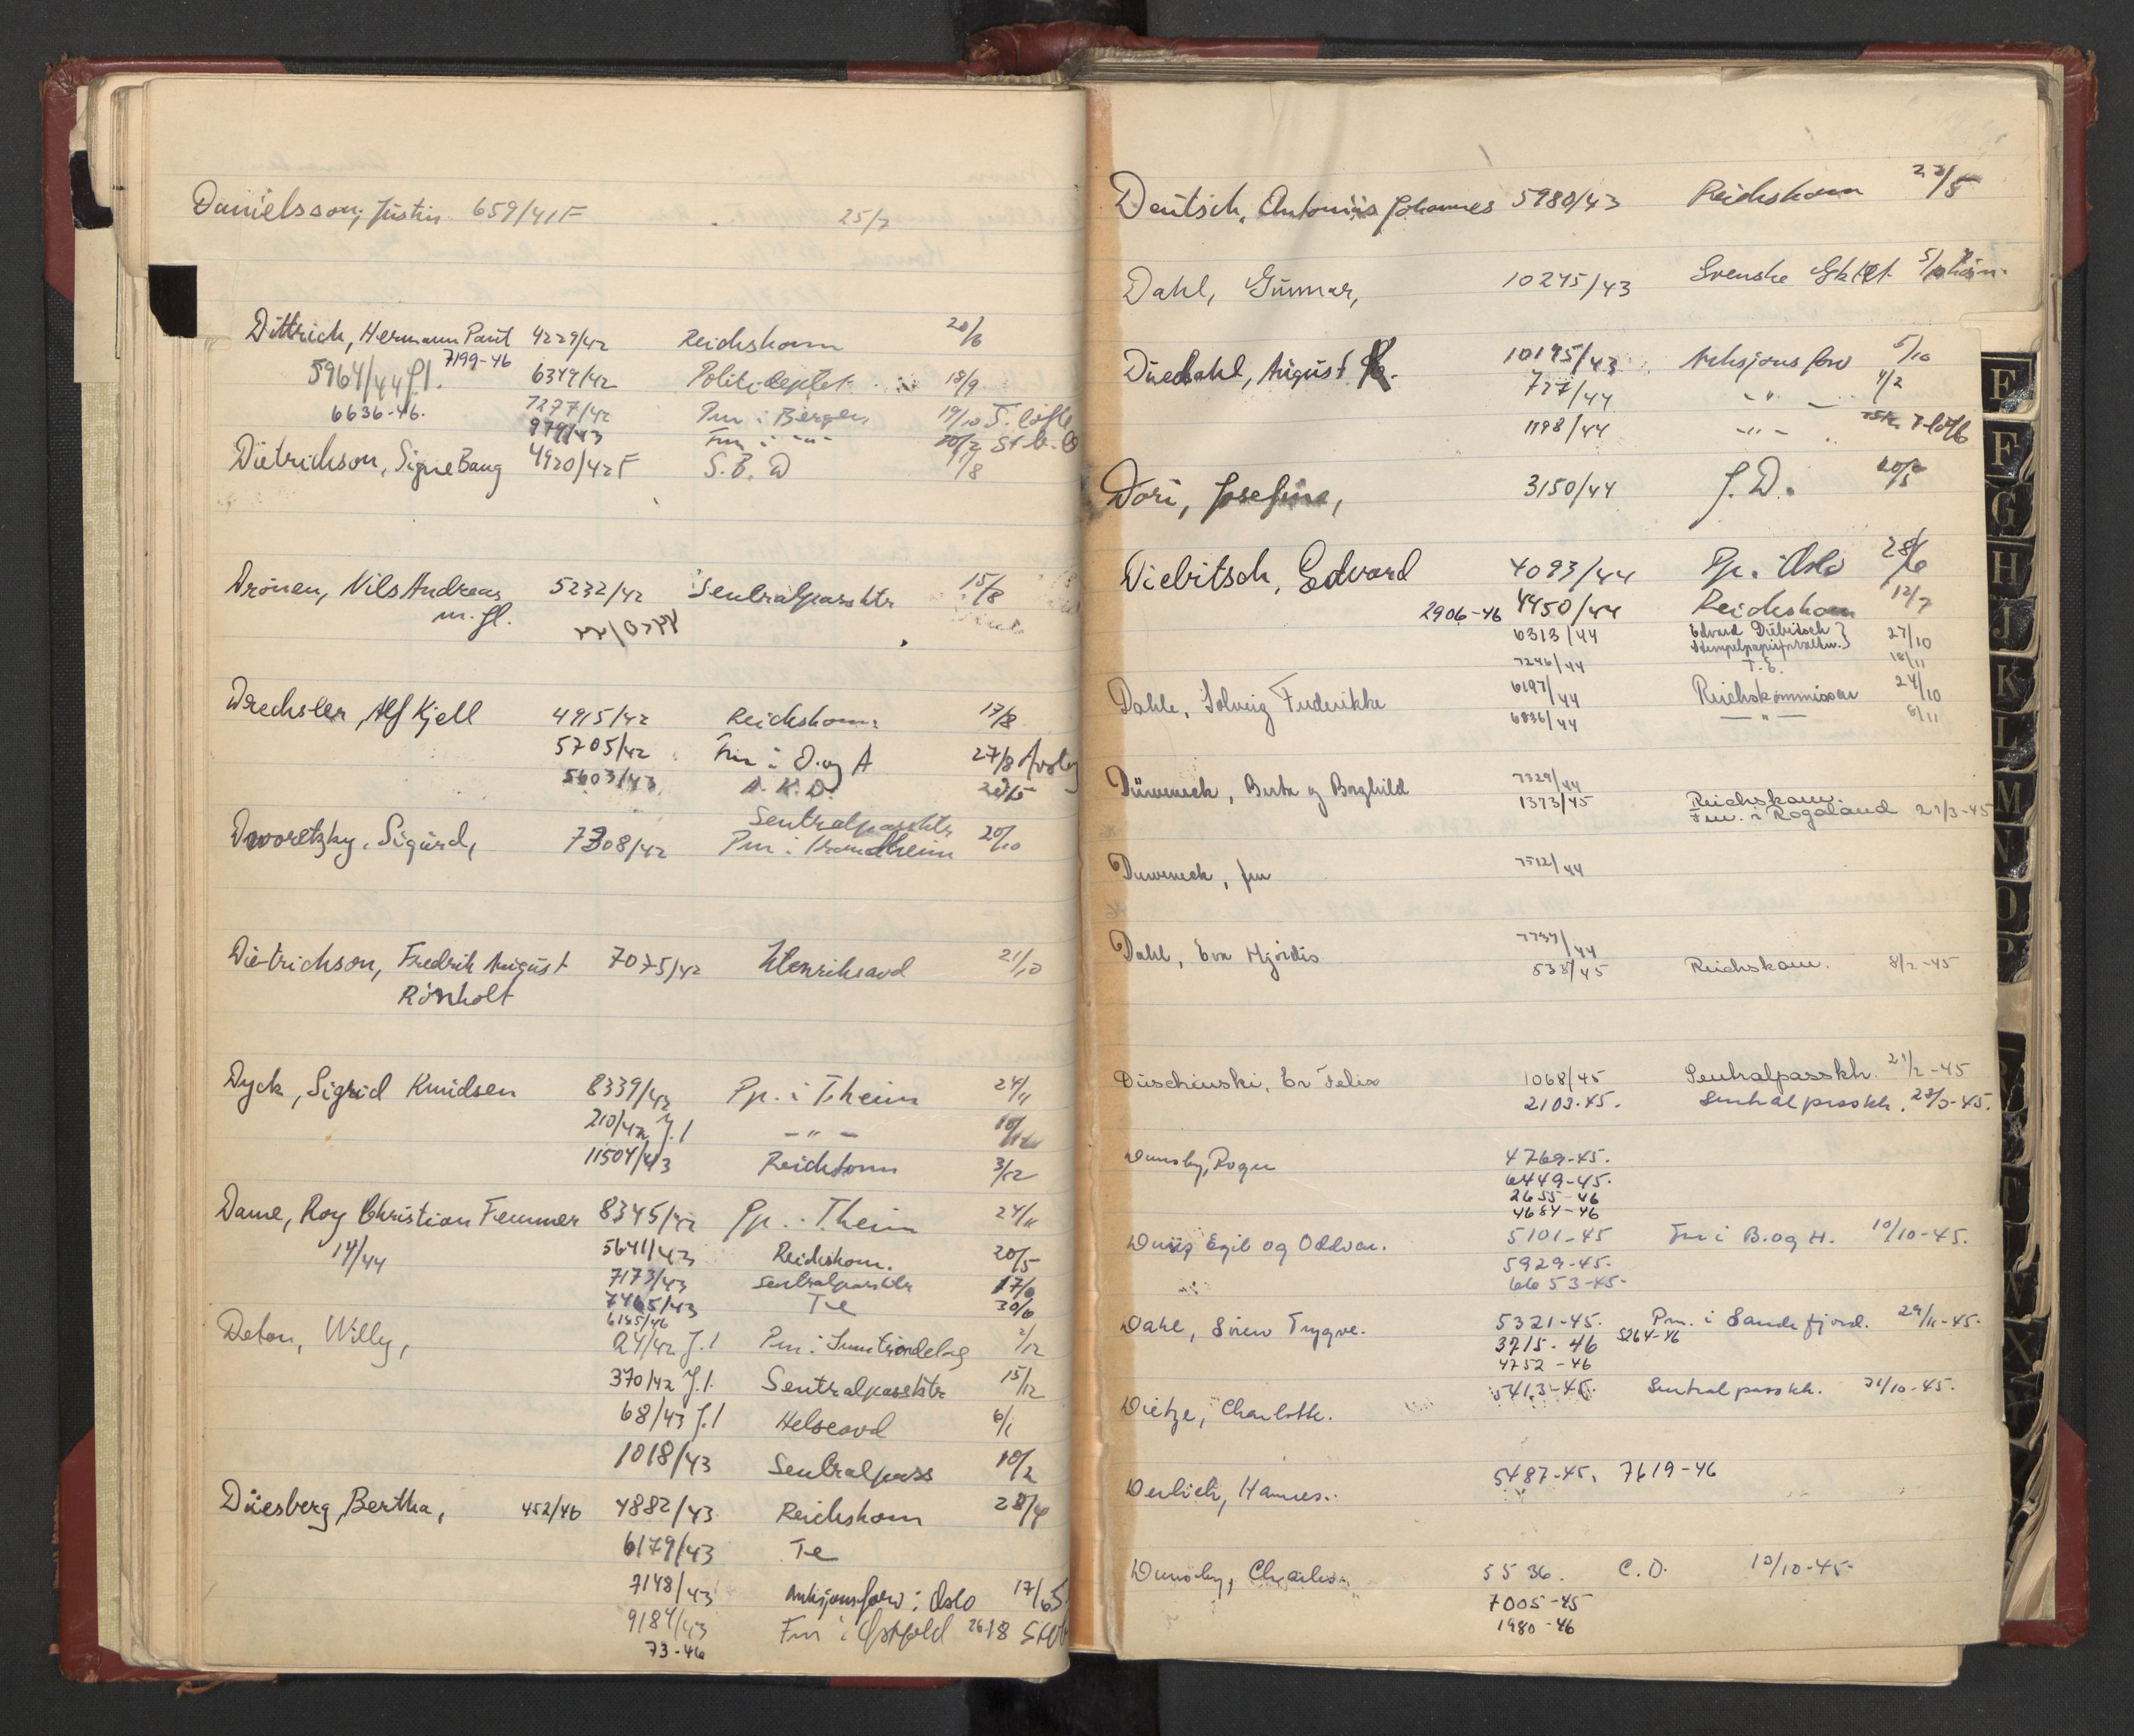 Danielsson, Justin 659/41 F 25/7
Dittrich, Hermann Paul 4229/42 Reichskom 20/6
7199-46
5964/44 J.l. 6349/42 Politideptet 18/9
6636-46. 7277/42 Pm i Bergen 19/10
979/43 Fm i -"- 20/2
Dietrichson, Signe Bang 4920/42 F S. B. D 1/8
Drönen, Nils Andreas 5232/42 Sentralpassktr 15/8
m. fl.
Drechsler, Alf Kjell 4915/42 Reichskom 17/8
5705/42 Fm i O. og A 27/8
5603/43 A. K. D. 20/5
Sentralpassktr
Dworetzky, Sigurd, 7308/42 Pm i Trondheim 20/10
Dietrichson, Fredrik August 7075/42 21/10
Rönholt
Dyck, Sigrid Knudsen 8339/42 Pp. i T.heim 24/11
210/42 J.l -"-
11504/43 Reichkom 3/12
Dame, Roy Christian Femmer 8345/42 Pp. i T.heim 24/11
14/44 5641/43 Reichskom. 20/5
7173/43 Sentralpassktr 17/6
7465/43 Te 30/6
6185/46
Deton, Willy, 24/42 J.l Pm i 2/12
370/42 J.l. Sentralpassktr 15/12
68/43 J.l Helseavd 6/1
1018/43 Sentralpass 10/2
Duesberg, Bertha, 452/46 4882/43 Reichskom 28/4
6179/43 Te
7148/43 Auksjonsforv i Oslo 17/6
9184/43 Fm i Østfold 26/8
73-46
Deutsch, Antonius Johannes 5980/43 Reichskom
Dahl, Gunnar, 10245/43 Svenske
Duedahl, August 10195/43 Auksjonsforv 5/10
727/44 -"- 4/2
1198/44 -"-
Dori, Josefine, 3150/44 J. D. 20/5
Diebitsch, Edvard 4093/44 Pp. i Oslo 28/6
2906-46 4450/44 Reichskom 12/7
6313/44 Edvard Diebitsch 27/10
Stempelpapirforvaltn.}
7246/44 T. E. 18/11
Dahle, Solveig Fredrikke 6197/44 Reichskommissar 24/10
6836/44 -"- 8/11
Düweneck, Berta og Borghild 7329/44
1373/45 Reichskom.
Fm. i Rogaland 21/3-45
Duweneck, fru 7512/44
Dahl, Eva Hjördis 7737/44
538/45 Reichskom. 8/2-45
Duschinski, Er. Felix 1068/45 Sentralpassktr. 21/2-45
2103-45. Sentralpassktr. 23/3-45.
Dunsby, Roger 4769-45.
6449-45.
2655-46
4684-46
Egil og Oddvar. 5101-45 Fm i B. og H. 10/10-45.
5929-45.
6653-45-
Dahl, Sören Trygve. 5321-45. Pm. i Sandefjord. 29/11-45.
3715-46 5264-46
4752-46
5413-45. Sentralpassktr. 31/10-45.
Dietze, Charlotte.
5487-45. 7619-46
Derlich, Hannes.
Dunsby, Charles. 5536. C. D. 10/10-45-
7005-45
1980-46
E
F
G
H
J
K
L
M
N
O
P